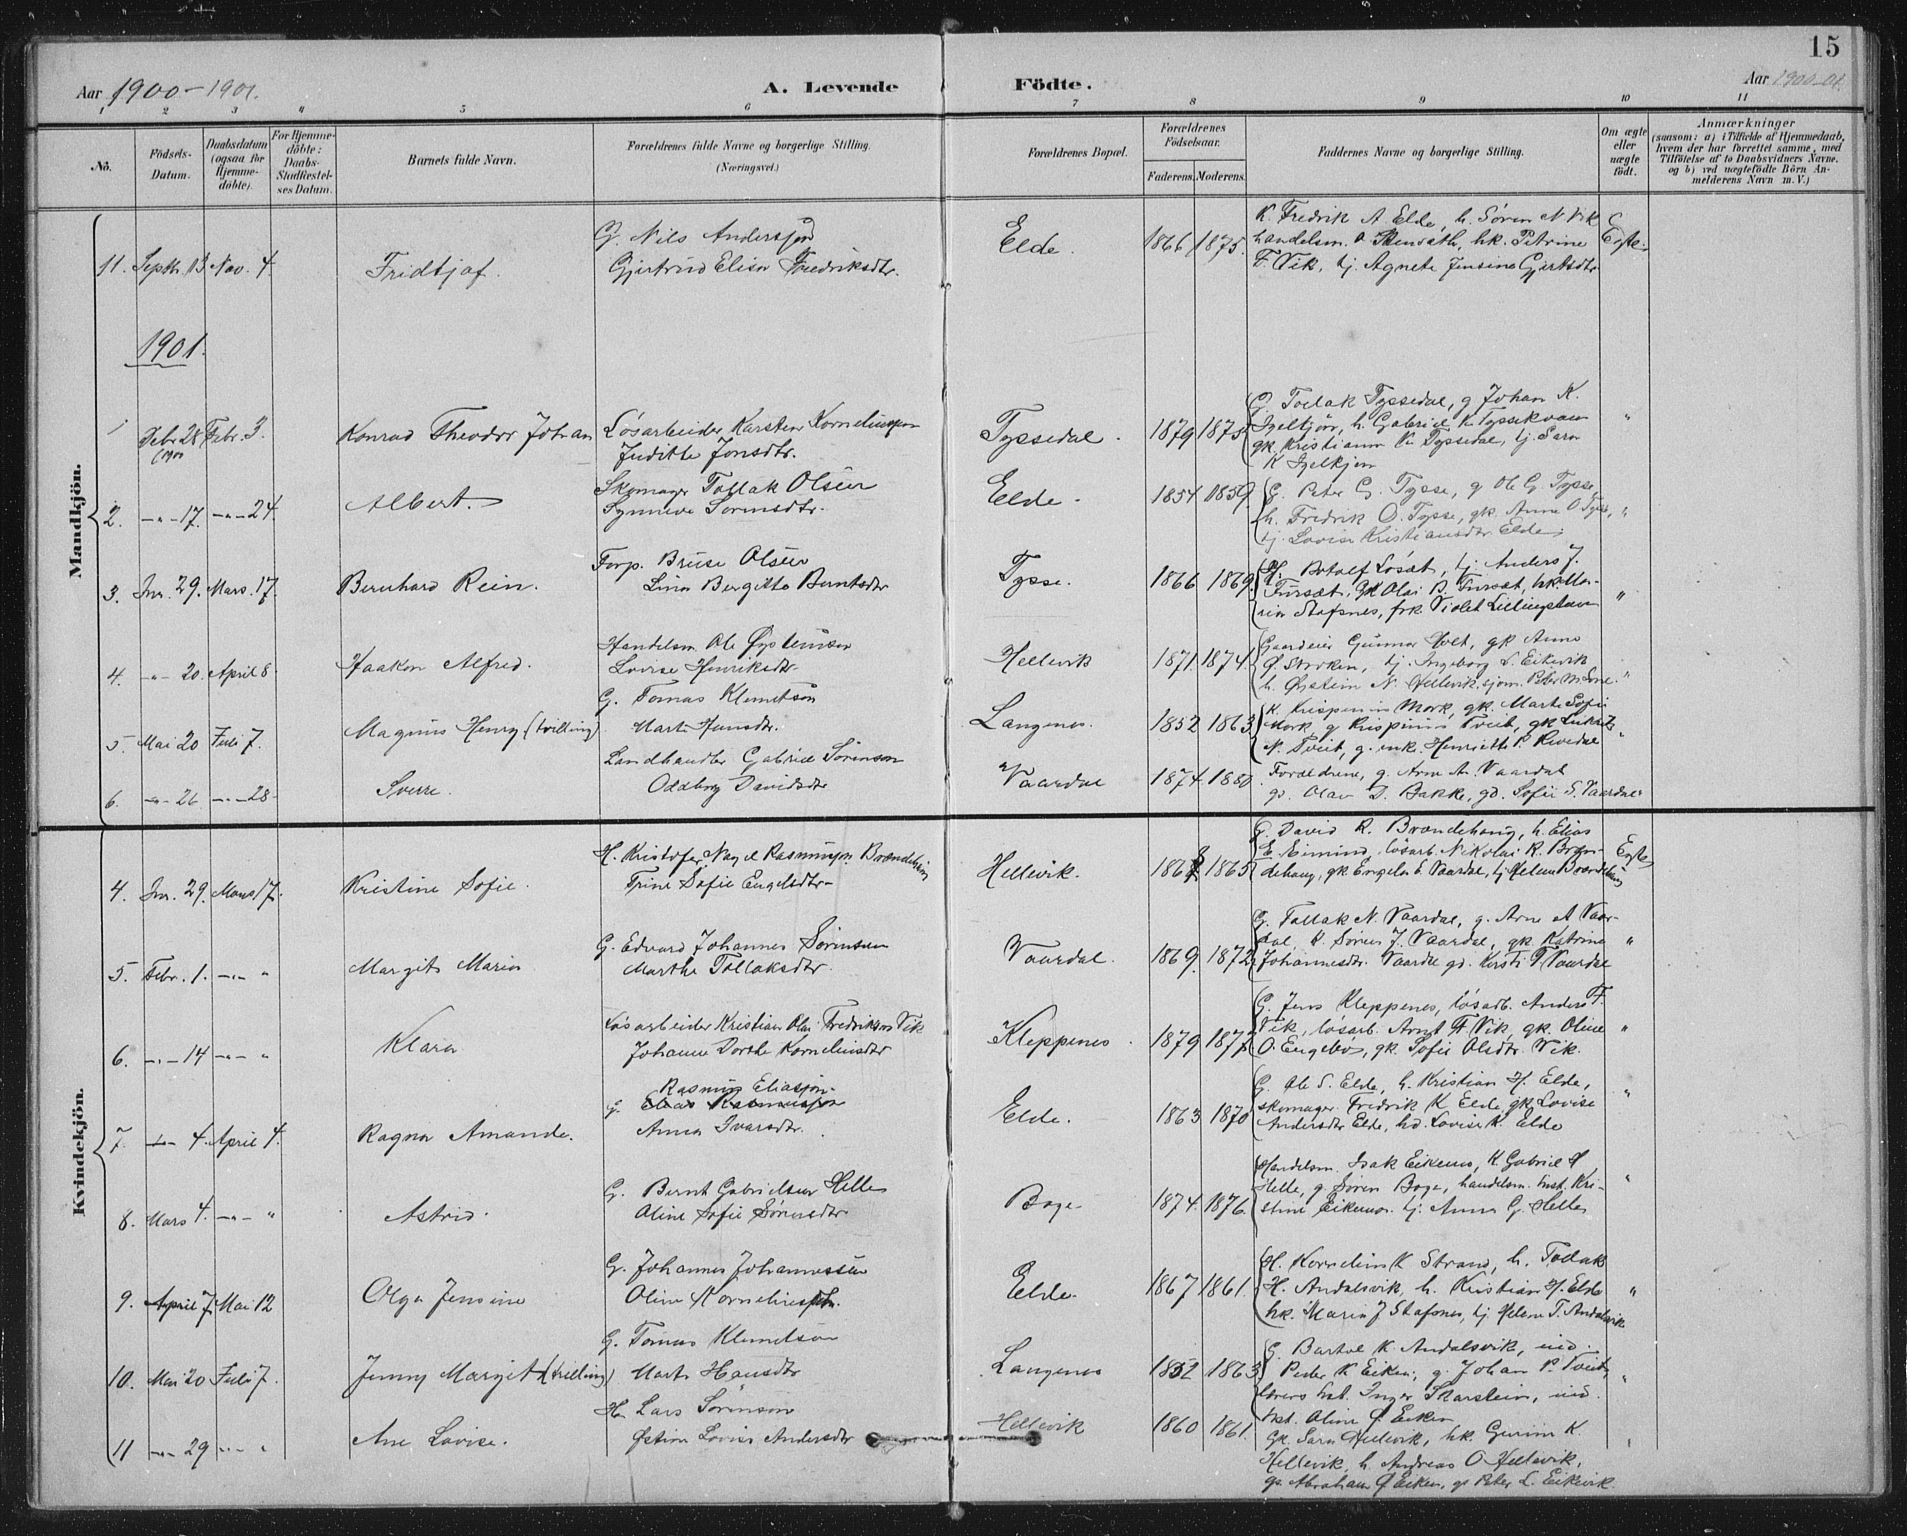 15
Aar 1900-1901.
A. Levende Födte.
Aar 1900-01.
1 2 3 " 5 6 7 8 9 10 11
No.
Födsels-Datum.
Daabsdatum (ogsaa för Hjemme-döbte).
For Hjemme-döbte: Daabs-Stadfæstel-ses Datum.
Barnets fulde Navn.
Forældrenes fulde Navne og borgerlige Stilling.
(Næringsvei.)
Forældrenes Bopæl.
Forældrenes Födselsaar.
Faderens. Moderens.
Faddernes Navne og borgerlige Stilling.
Om ægte eller uægte födt.
Anmærkninger
(saasom: a) i Tilfælde af Hjemmedaab, hvem der har forrettet samme, med Tilföielse af to Daabsvidners Navne. og b) ved uægtefödte Börn An-melderens Navn m. V.)
Mandkjön.
11. Septbr. 13 Nov. 4. Fridtjof. G. Nils Anderssen
Gjertrud Elisa Fredriksdtr. Elde. 1866 1875. K. Fredrik A. Elde, h. Søren N. Vik
handelsm. hk. Petrine
F. Vik, tj. Agnete Jensine Gjertsdtr. Egte
1901.
1 Febr. 3. Konrad Theodor Johan Løsarbeider Karsten Korneliussen
Judithe Jonsdtr. Tyssedal. 1879 1875 G. Tollak Tyssedal, g Johan K.
h. Gabriel K. Tyssekvam
gk. Kristianna K. Tyssedal, tj. Sara
K "
2. -"- 17. -"- 24. Albert. Skomager Tollak Olsen
Synneve Sørensdtr. Elde. 1854 1859. G. Peter G. Tysse, g Ole G. Tysse,
h. Fredrik O. Tysse, gk. Anna O Tysse,
tj. Lovise Kristiansdtr Elde. "
3. Jnr. 29. Mars. 17. Bernhard Rein. Forp. Bruse Olsen
Lina Bergitte Berntsdtr Tysse. 1866 1869 Botolf Løsæt, tj. Anders J.
Fursæt, gk Olai B. Fursæt, hk Ma-
ria Stafsnes, frk Violet "
4. -"- 20. April 8. Haakon Alfred. Handelsm. Ole Øysteinsen
Lovise Henriksdtr. Hellevik 1871. 1874. Gaardeier Gunnar Holt, gk Anna
tj. Ingeborg L. Eikevik
h. Øystein N. Hellevik, sjøm. Peter "
5. Mai 20 Juli 7. Magnus Henry (tvilling) G. Tomas Klemetsen
Marte Hansdtr. Langenes. 1852 1863 K. Krispinus Mork, gk. Marte Sofie
Mork, g Krispinus Tveit, gk
N. Tveit, g. enk. Henriette P. "
6. -"- 26 -"- 28. Sverre. Landhandler Gabriel Sørensen
Oddborg Davidsdtr Vaardal 1874. 1880. Forældrene, g. Arne A. Vaardal
gs. Olav D. Bakke, gd. Sofie S. Vaardal
Kvindekjön.
4. Jnr. 29. Mars 17. Kristine Sofie. H. Kristofer Nagel Rasmussen Brændehaug
Trine Sofie Engelsdtr. Hellevik. 1865 G. David R. Brændehaug, h. Elias
E. løsarb. Nikolai R. Bræn-
dehaug, gk Engelen E Vaardal, tj Helene Brændehaug Egte
5. Febr. 1. -"- " Margit Maria G. Edvard Johannes Sørensen
Marthe Tollaksdtr. Vaardal. 1869. 1872. G. Tollak N. Vaardal, g. Arne A Vaar-
dal, K. Søren J. Vaardal, gk. Katrine
Johannesdtr. Vaardal gd. Kirsti T Vaardal "
6. -"- 14 -"- " Klara Løsarbeider Kristian Olai Fredriksen Vik
Johanna Dorthe Korneliusdtr Kleppenes. 1879 G. Jens Kleppenes, løsarb. Anders F.
Vik, løsarb. Arnt F. Vik, gk. Oline
O. Engebø, gk. Sofie Olsdtr. Vik. "
7. -"- 4. April 4. Ragna Amanda. Rasmus Eliassen
G. Elias Rasmussen
Anna Ivarsdtr. Elde. 1863 1870 G. Ole S. Elde, h. Kristian H. Elde,
skomager Fredrik K Elde, gk Lovise
Andersdtr Elde, hd. Lovise K. Elde "
8. Mars 4. -"- " Astrid. G. Bernt Gabrielsen Helle
Oline Sofie Sørensdtr Boge 1874. 1876. Handelsm. Isak Eikenes, K Gabriel H
Helle, g. Søren Boge, handelsm. hust. Kri-
stine Eikenes, tj. Anna G. Helle "
9. April 7. Mai 12 Olga Jensine G. Johannes Johannessen
Oline Korneliusdtr. Elde. 1867 1861. H. Kornelius K Strand, h. Tollak
H. Andalsvik, h. Kristian H. Elde
hk. Maria J Stafsnes, tj Helene T. Andalsvik "
10. Mai 20 Juli 7. Jenny Margit (tvilling) G. Tomas Klemetsen
Marte Hansdtr Langenes 1852 1863 G. Bertel K. Andalsvik, ind.
Peder K Eiken, g. Johan P. Tveit,
lærers hst. Inger Skarstein, ind.
hst. Oline Ø. Eiken "
11 -"- 29 -"- " Ane Lovise. H. Lars Sørensen
Østine Lovise Andersdtr Hellevik 1860 1861. Gk. Sara Hellevik, hk. Gurine K.
Hellevik, h. Andreas O Hellevik,
gs. Abraham Ø Eiken, gs Peter L. Eikevik "